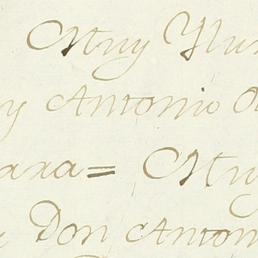 Muy Ylu
y Antonio O
ara= Muy
Don Anton